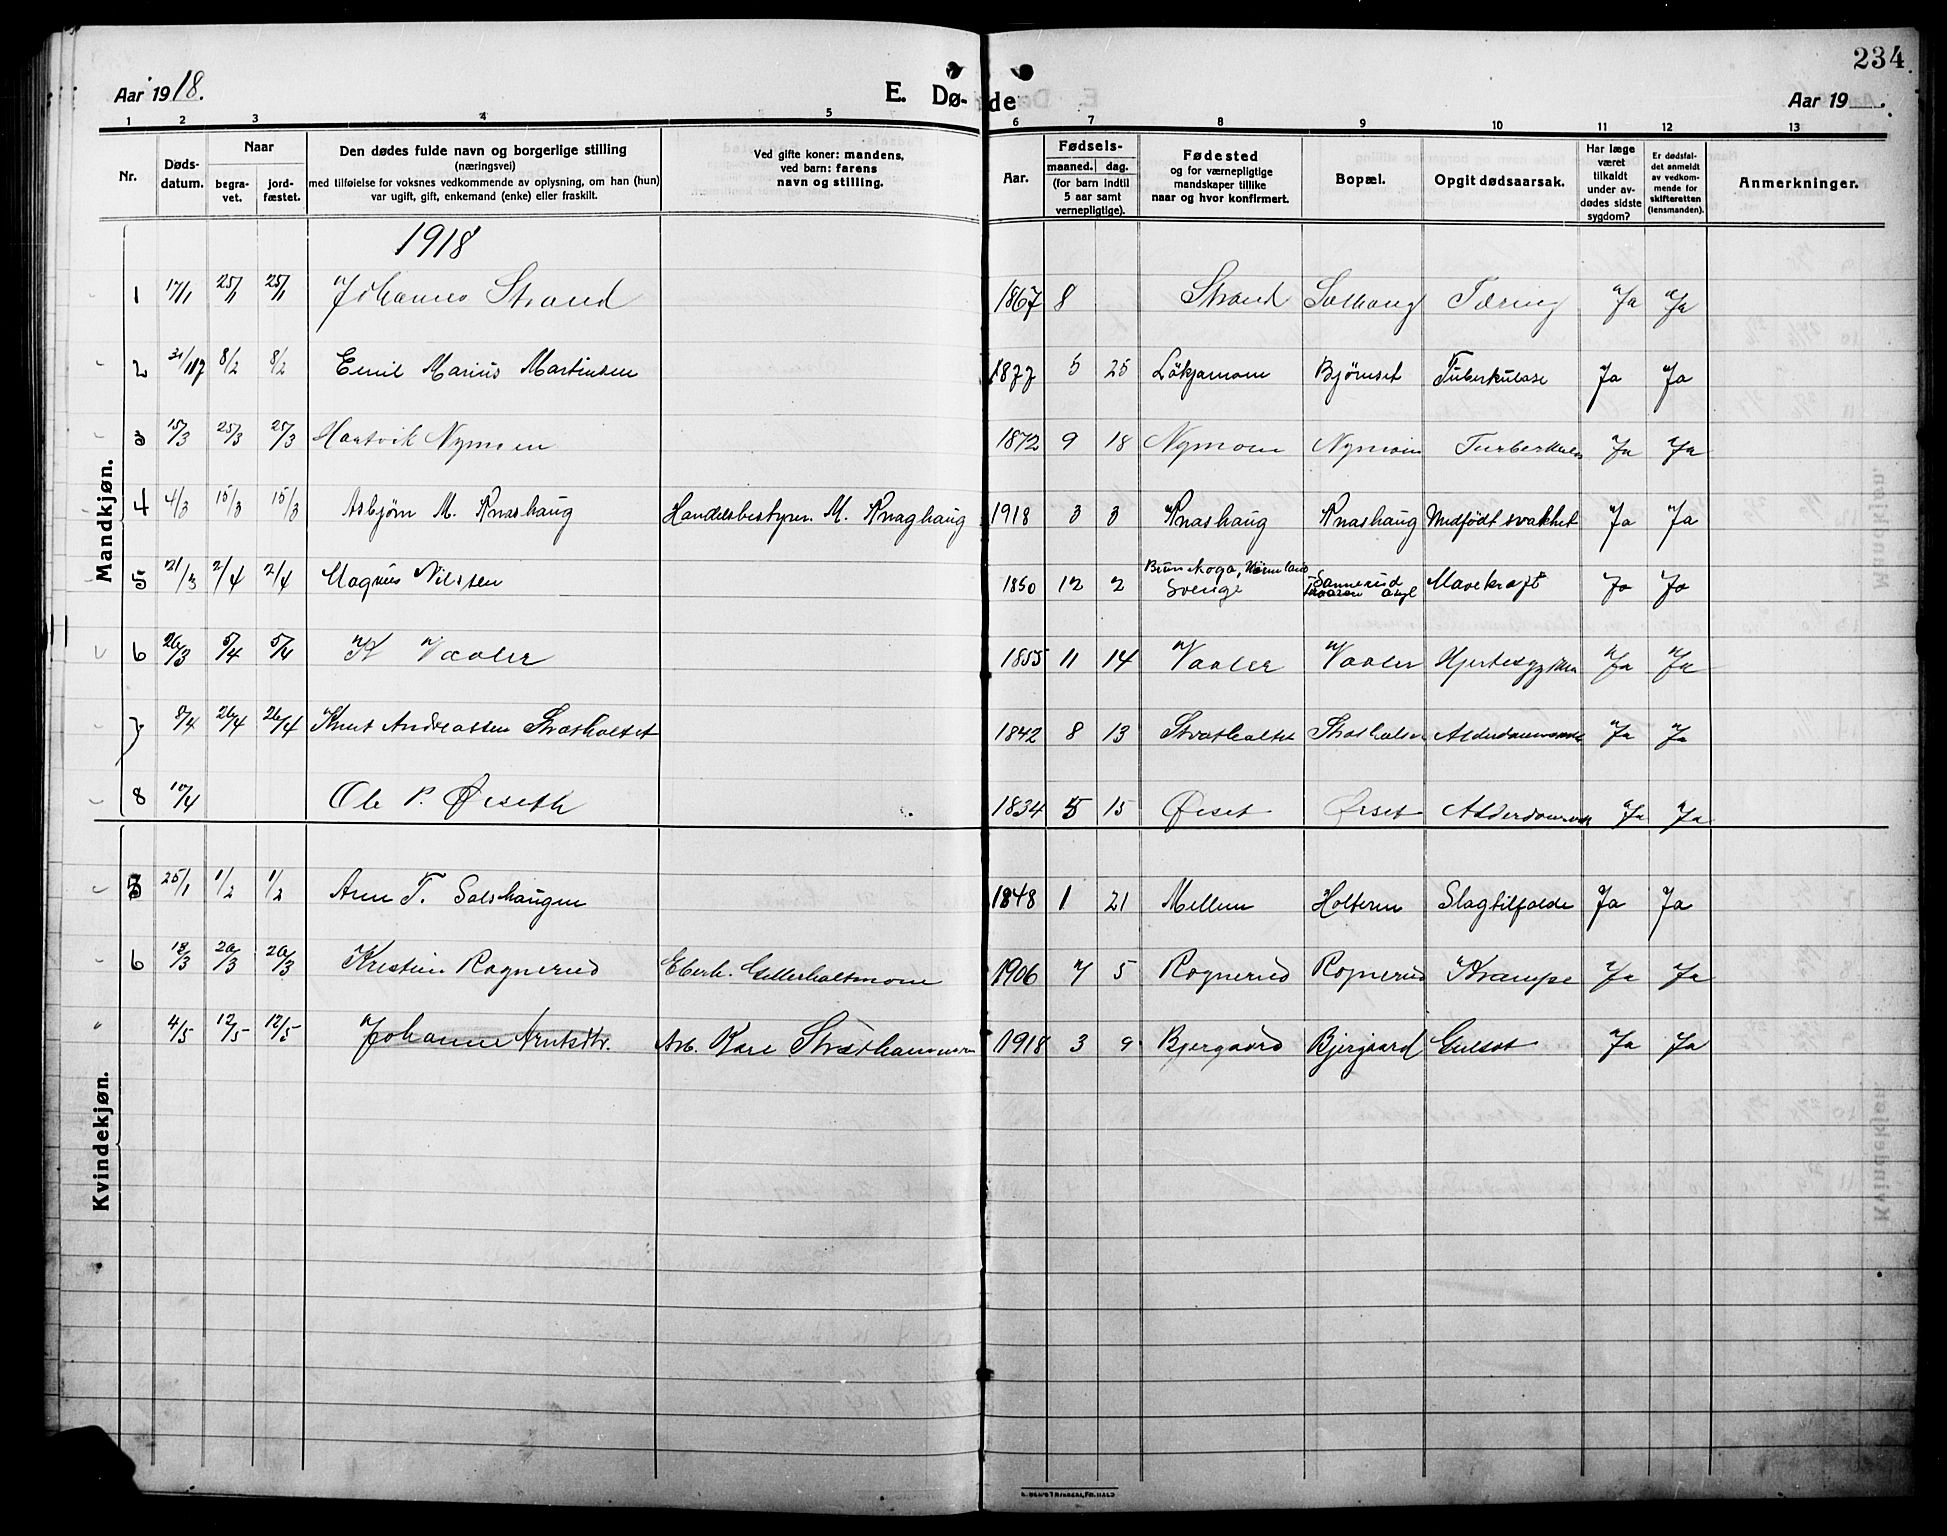 234
Aar 1918.
E. Døde
Aar 19
1 2 3 4 5 6 7 8 9 10 11 12 13
Nr.
Døds-datum.
Naar
begravet.
jordfæstet.
Den dødes fulde navn og borgerlige stilling
(næringsvei)
med tilføielse for voksnes vedkommende av oplysning, om han (hun)
var ugift, gift, enkemand (enke) eller fraskilt.
Ved gifte koner: mandens,
ved barn: farens
navn og stilling.
Aar.
Fødsels-
maaned. dag.
(for barn indtil
5 aar samt
vernepligtige).
Fødested
og for værnepligtige
mandskaper tillike
naar og hvor konfirmert.
Bopæl.
Opgit dødsaarsak.
Har læge
været
tilkaldt
under av-
dødes sidste
sygdom?
Er dødsfal-
det anmeldt
av vedkom-
mende for
skifteretten
(lensmanden).
Anmerkninger.
Mandkjøn.
1918
1 17/1 25/1 25/1 Johannes Strand 1867 8 Strand Solhaug Tæring Ja Ja
2 31/1 8/2 8/2 Emil Marius Martinsen 1877 5 25 Bjørnset Tuberkulose Ja Ja
3 15/3 25/3 25/3 Hartvik Nymoen 1872 9 18 Nymoen Nymoen Ja Ja
4 4/3 15/3 15/3 Asbjørn M. Knashaug Handelsbestyrer M. Knaghaug 1918 3 3 Knashaug Knashaug Medfödt svakhet Ja Ja
5 21/3 2/4 2/4 Magnus Nilssen 1850 12 2 Brunskoga, Värmland
Sverige Sannerud Mavekræft Ja Ja
6 26/3 5/4 5/4 K Vaaler 1855 11 14 Vaaler Vaaler Ja Ja
7 8/4 26/4 26/4 Knut Andreassen Stratholtet 1842 8 13 Ja Ja
8 10/4 Ole P. Øiseth 1834 5 15 Øiset Øiset Ja Ja
Kvindekjøn.
5 25/1 1/2 1/2 Arne T. Galshaugen 1848 1 21 Mellem Holteren Slagtilfælde Ja Ja
6 18/3 20/3 20/3 Kristine Rognerud 1906 7 5 Rognerud Rognerud Krampe Ja Ja
" 4/5 12/5 12/5 Johanne Arntsdtr. Arb. Kare 1918 3 9 Bjergaard Bjergaard Gulsot Ja Ja